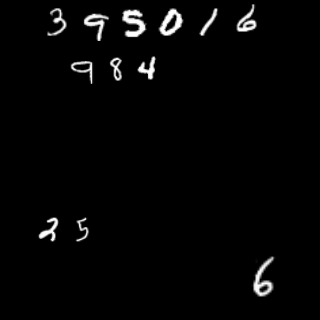 395016
984
25
6